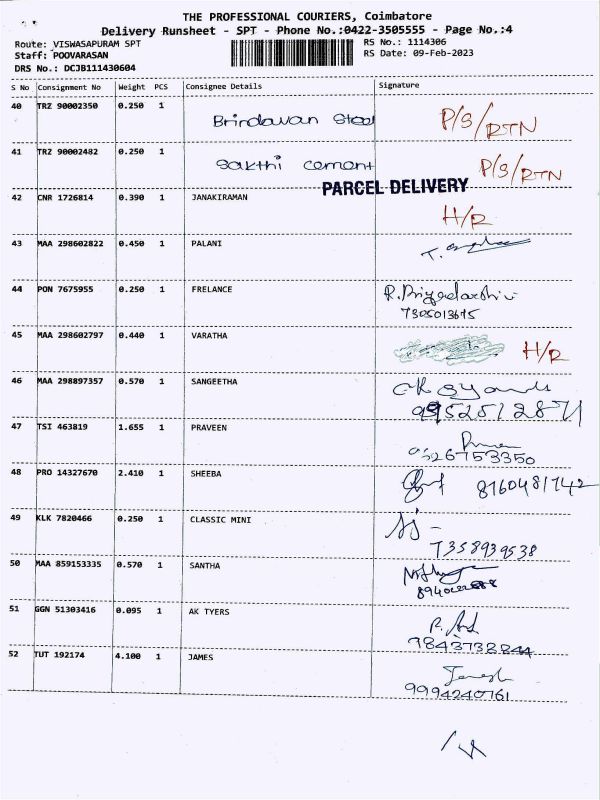 THE PROFESSIONAL COURIERS, Coimbatore
Delivery Runsheet - SPT - Phone No.:0422-3505555 - Page No.:4
Route: VISWASAPURAM SPT RS No.: 1114306
Staff: POOVARASAN RS Date: 09-Feb-2023
DRS No.: DCJB111430604
S No Consignment No Weight PCS Consignee Details Signature
40 TRZ 90002350 0.250 1 Brindavan Steel P/S/RTN
41 TRZ 90002482 0.250 1 Sakthi cement P/S/RTN
PARCEL DELIVERY
42 CNR 1726814 0.390 1 JANAKIRAMAN H/R
43 MAA 298602822 0.450 1 PALANI
44 PON 7675955 0.250 1 FRELANCE R. Priyadarshini
7305013675
45 MAA 298602797 0.440 1 VARATHA H/R
46 MAA 298897357 0.570 1 SANGEETHA
9952512871
47 TSI 463819 1.655 1 PRAVEEN
48 PRO 14327670 2.410 1 SHEEBA 8160481742
49 KLK 7820466 0.250 1 CLASSIC MINI
7358939538
50 MAA 859153335 0.570 1 SANTHA
51 GGN 51303416 0.095 1 AK TYERS
9843738844
52 TUT 192174 4.100 1 JAMES
9994240761